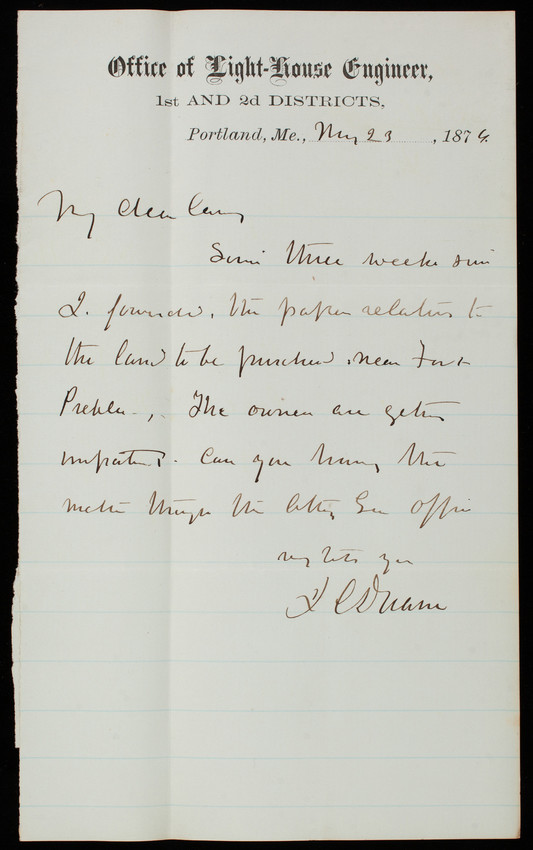 Office of Light-House Engineer,
1st AND 2d DISTRICTS,
Portland, Me., May 23, 1876.
My dear Casey
Some three weeks since
I forwarded the papers relating to
the land to be purchased near Fort
Preble. The owners are getting
impatient. Can you hurry the
matter through the Atty Gen office
Very truly yrs
J C Duane